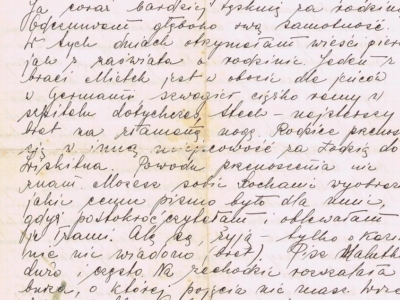 Ja coraz bardziej tęsknię za rodziną
Odczuwam głęboko swą samotność.
W tych dniach otrzymałam wieści pierw
jak z zaświata o rodzinie. Jeden z
braci Mietek jest w obozie dla jeńców
w Germanii szwagier ciężko ranny w
szpitalu dotychczas Stach – najstarszy
brat ma złamaną nogę. Rodzice przenos
się w inną miejscowość za Łodzią do
Powodu przenoszenia nie
znam. Możesz sobie Kochani wyobraz
jakie cenne pismo było dla mnie,
gdyż postokroć czytałam i oblewałam
je łzami. Ale są, żyją – tylko o Kaz
nic nie wiadomo (brat). Pisz
dużo i często Na
o której pojęcia nie masz